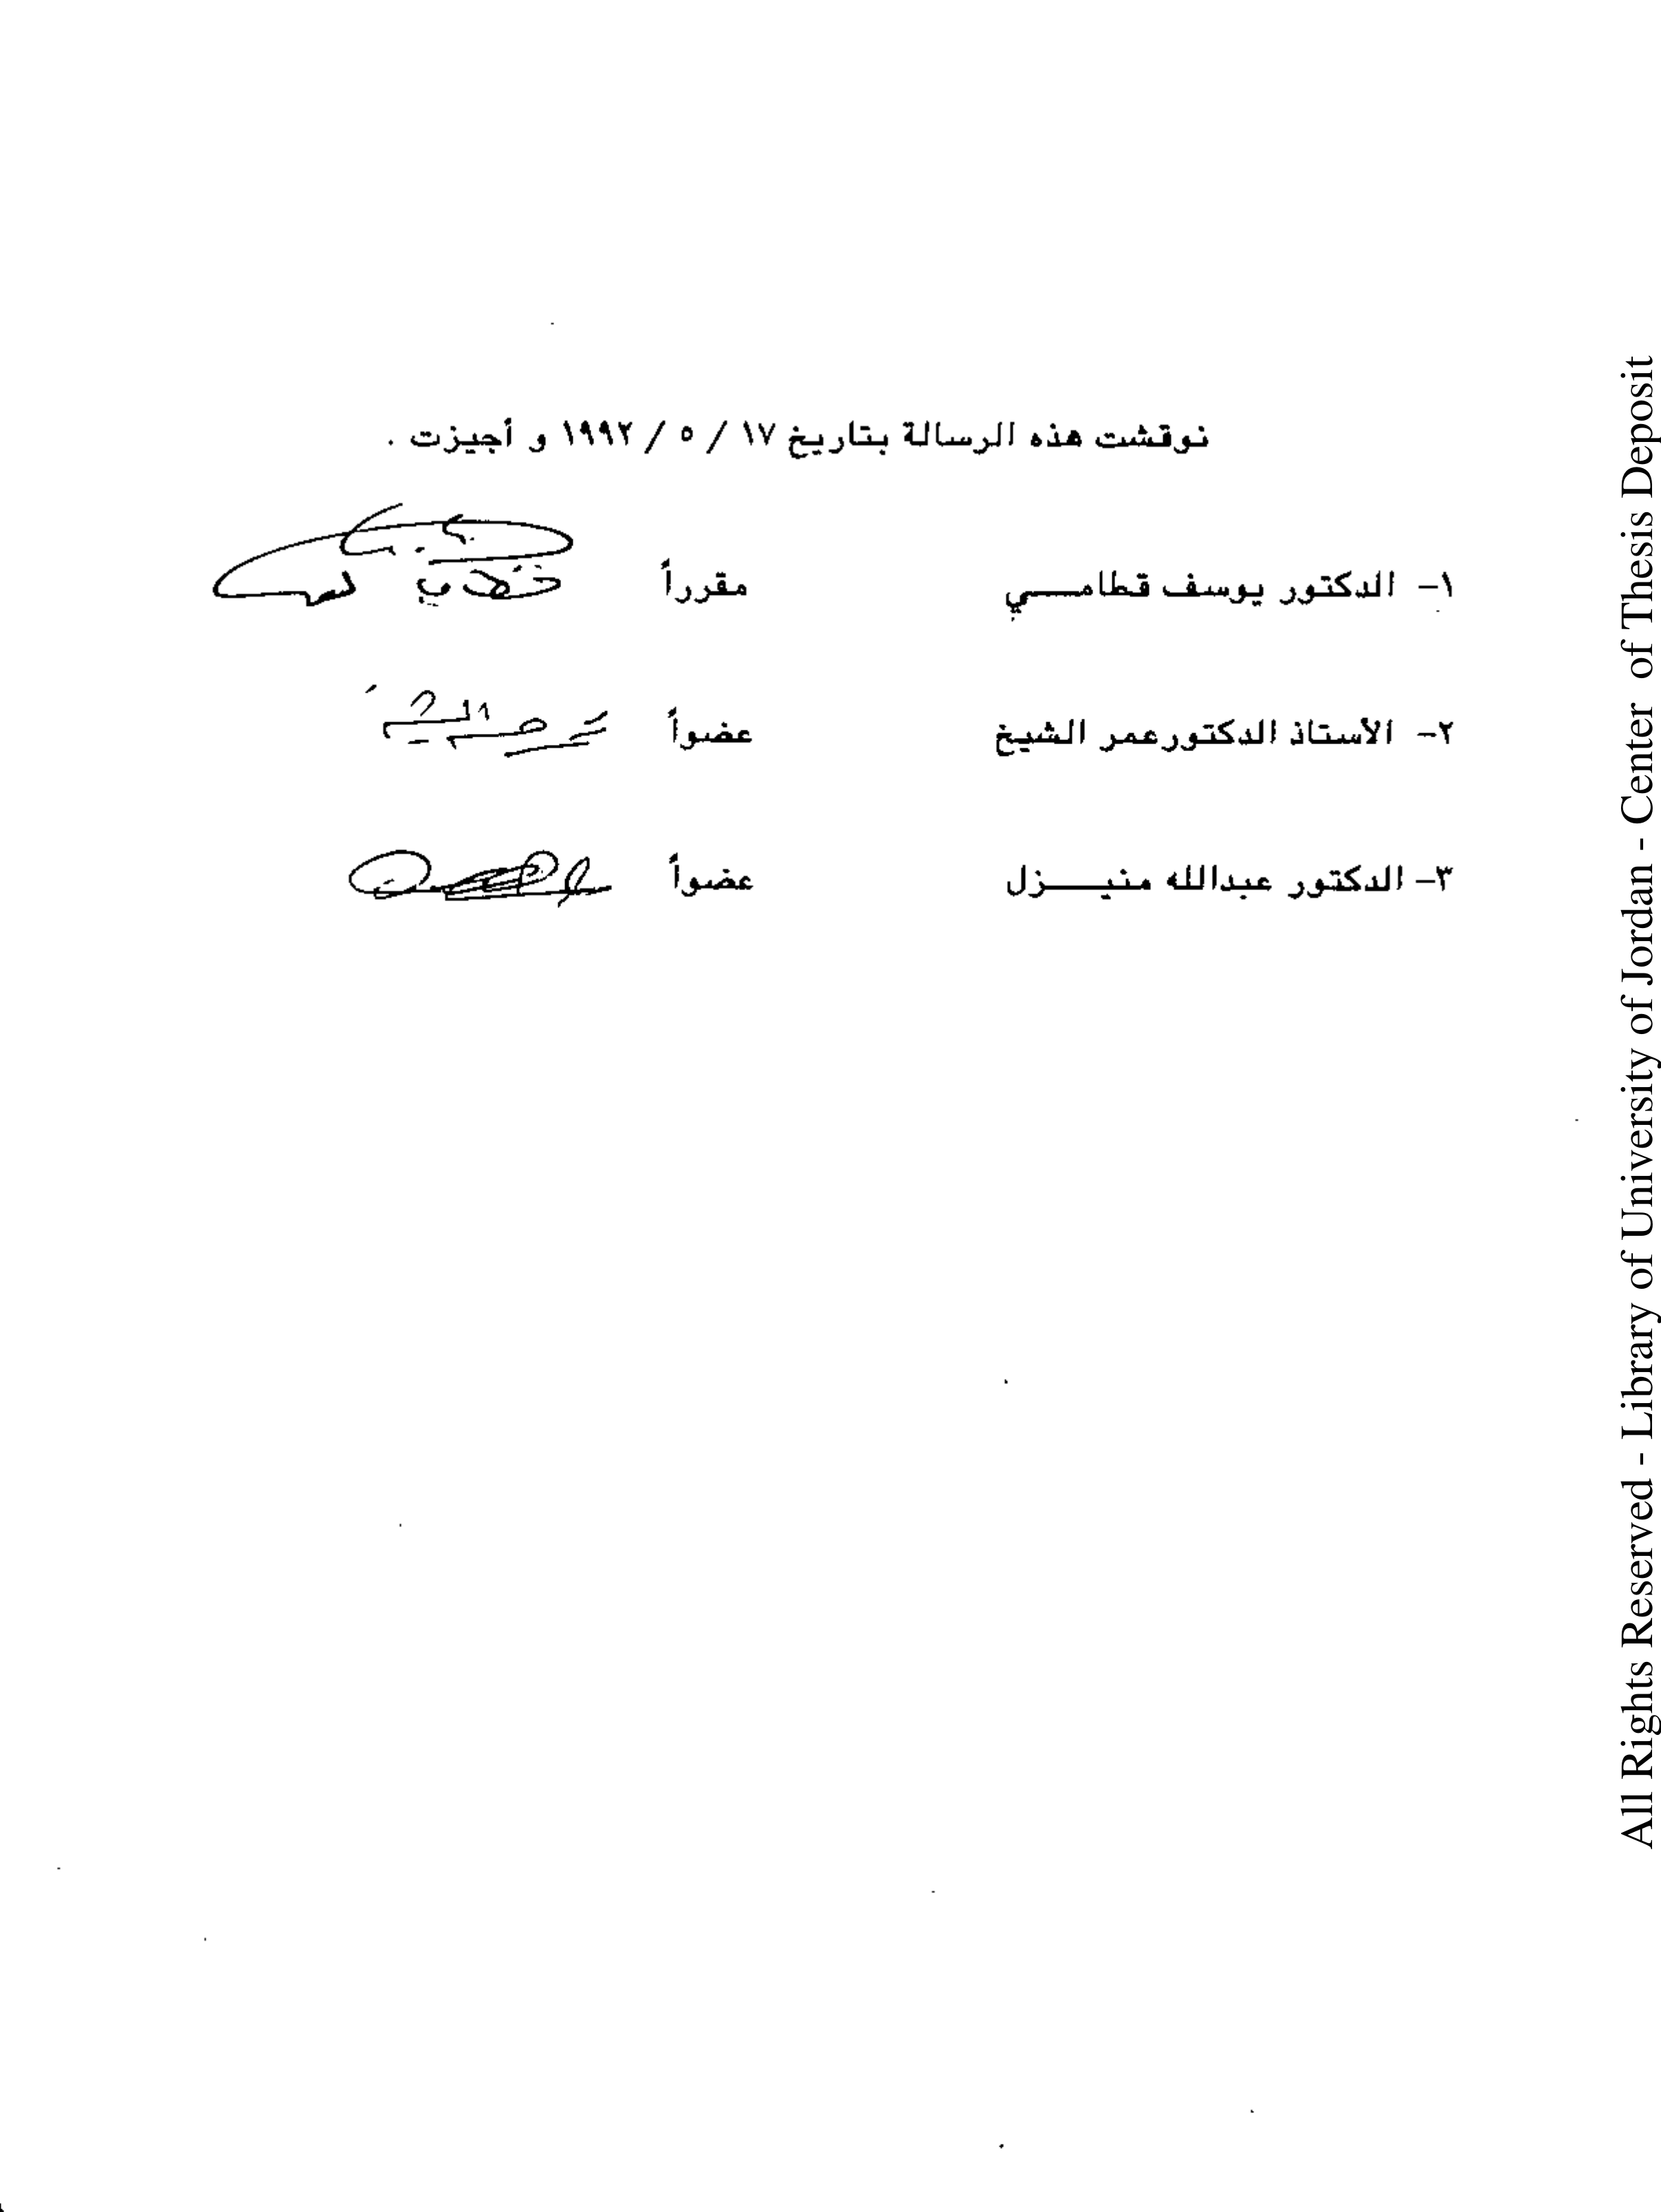 نوقشت هذه الرسالة بتاريخ ١٧ / ٥ / ١٩٩٢ و أجيزت .
١- الدكتور يوسف قطامـــي مقرراً
٢- الأستاذ الدكتورعمر الشيخ عضواً
٣- الدكتور عبدالله منيـــزل عضواً
All Rights Reserved - Library of University of Jordan - Center of Thesis Deposit